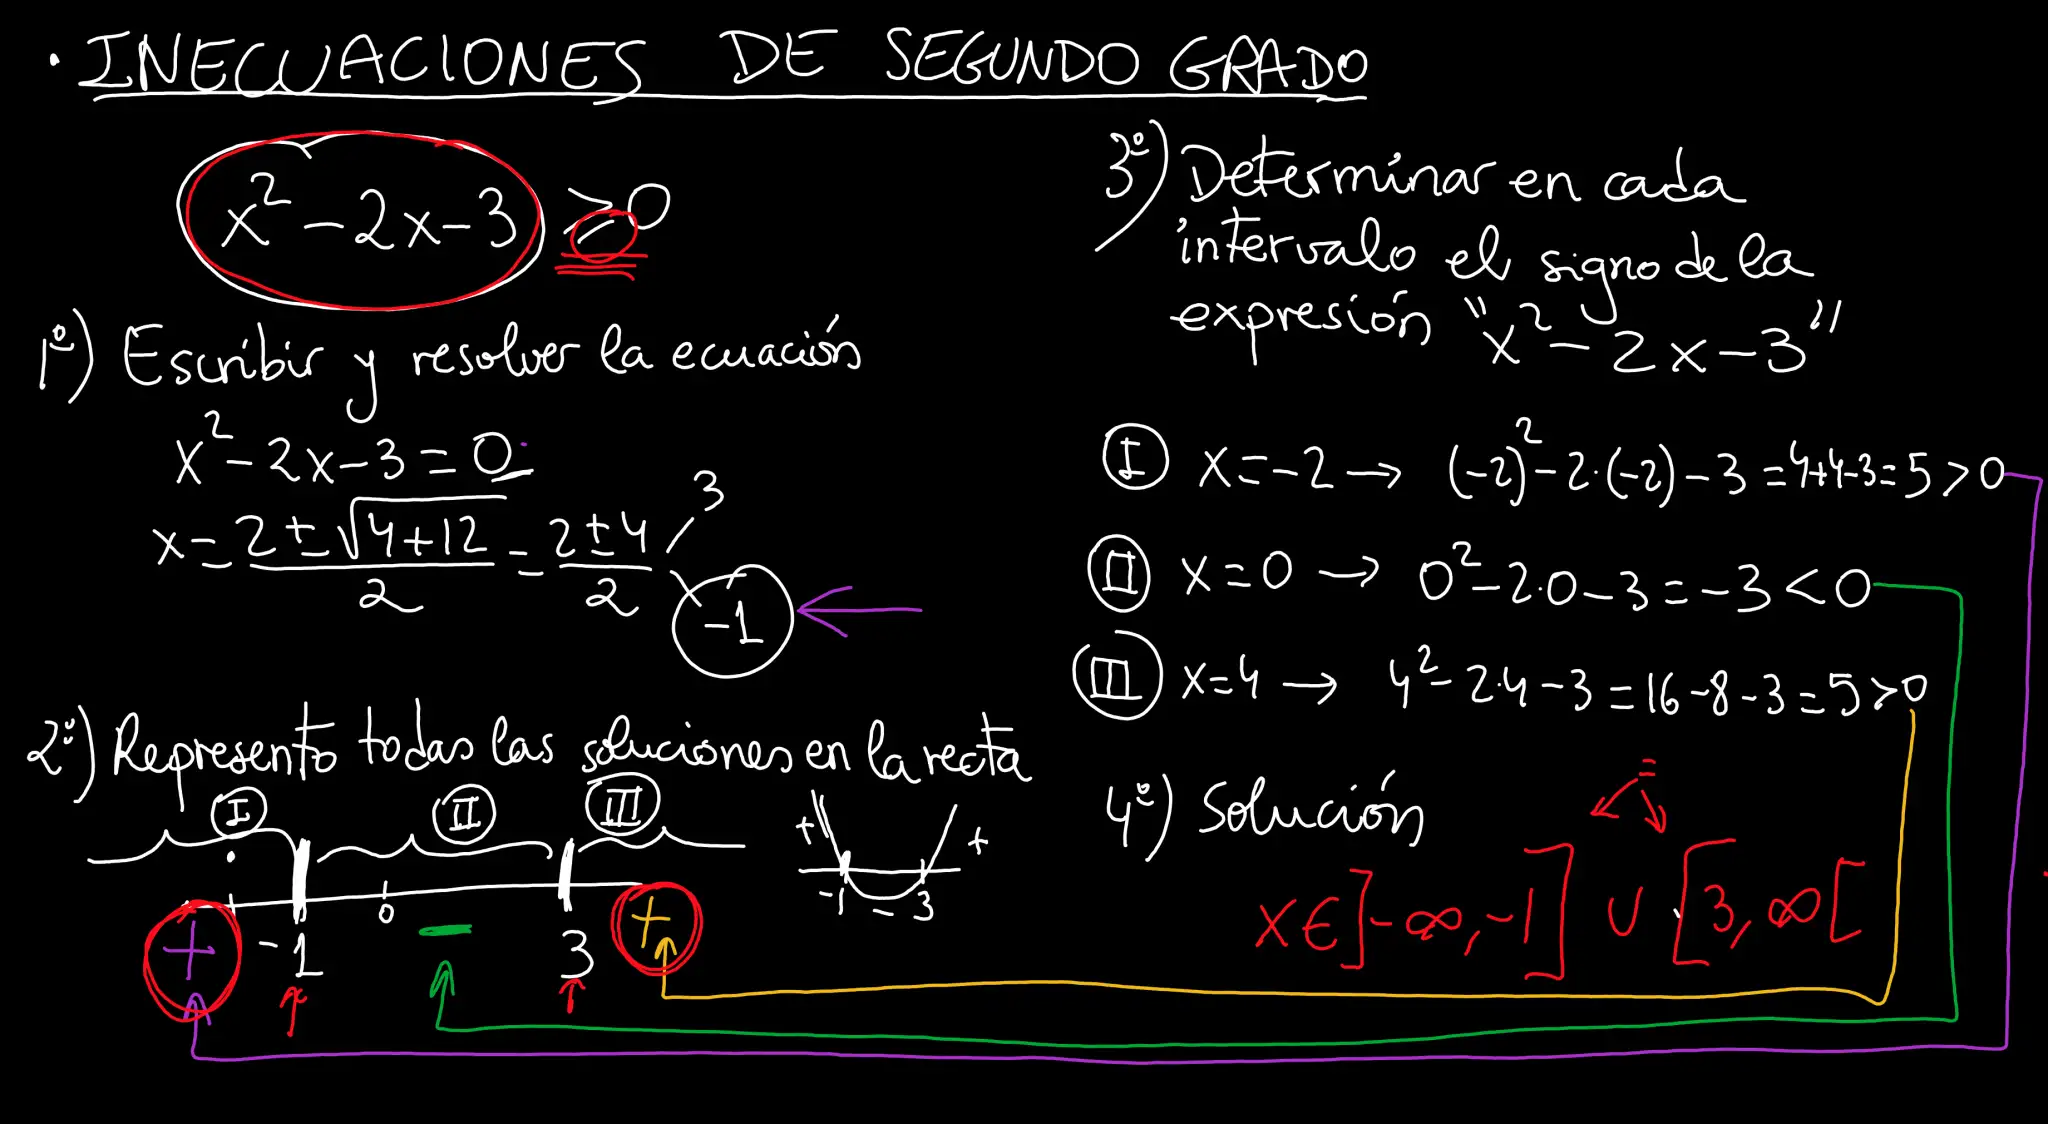 · INECUACIONES DE SEGUNDO GRADO
x² - 2x - 3 ≥ 0
1º) Escribir y resolver la ecuación
x² - 2x - 3 = 0
x = (2 ± √(4+12))/2 = (2 ± 4)/2
3
-1
2º) Represento todas las soluciones en la recta
I II III
0
+ -1 - 3 +
+ +
-1 - 3
3º) Determinar en cada
intervalo el signo de la
expresión "x² - 2x - 3"
I x = -2 → (-2)² - 2·(-2) - 3 = 4+4-3 = 5 > 0
II x = 0 → 0² - 2·0 - 3 = -3 < 0
III x = 4 → 4² - 2·4 - 3 = 16 - 8 - 3 = 5 > 0
4º) Solución
=
x ∈ ]-∞, -1] ∪ [3, ∞[